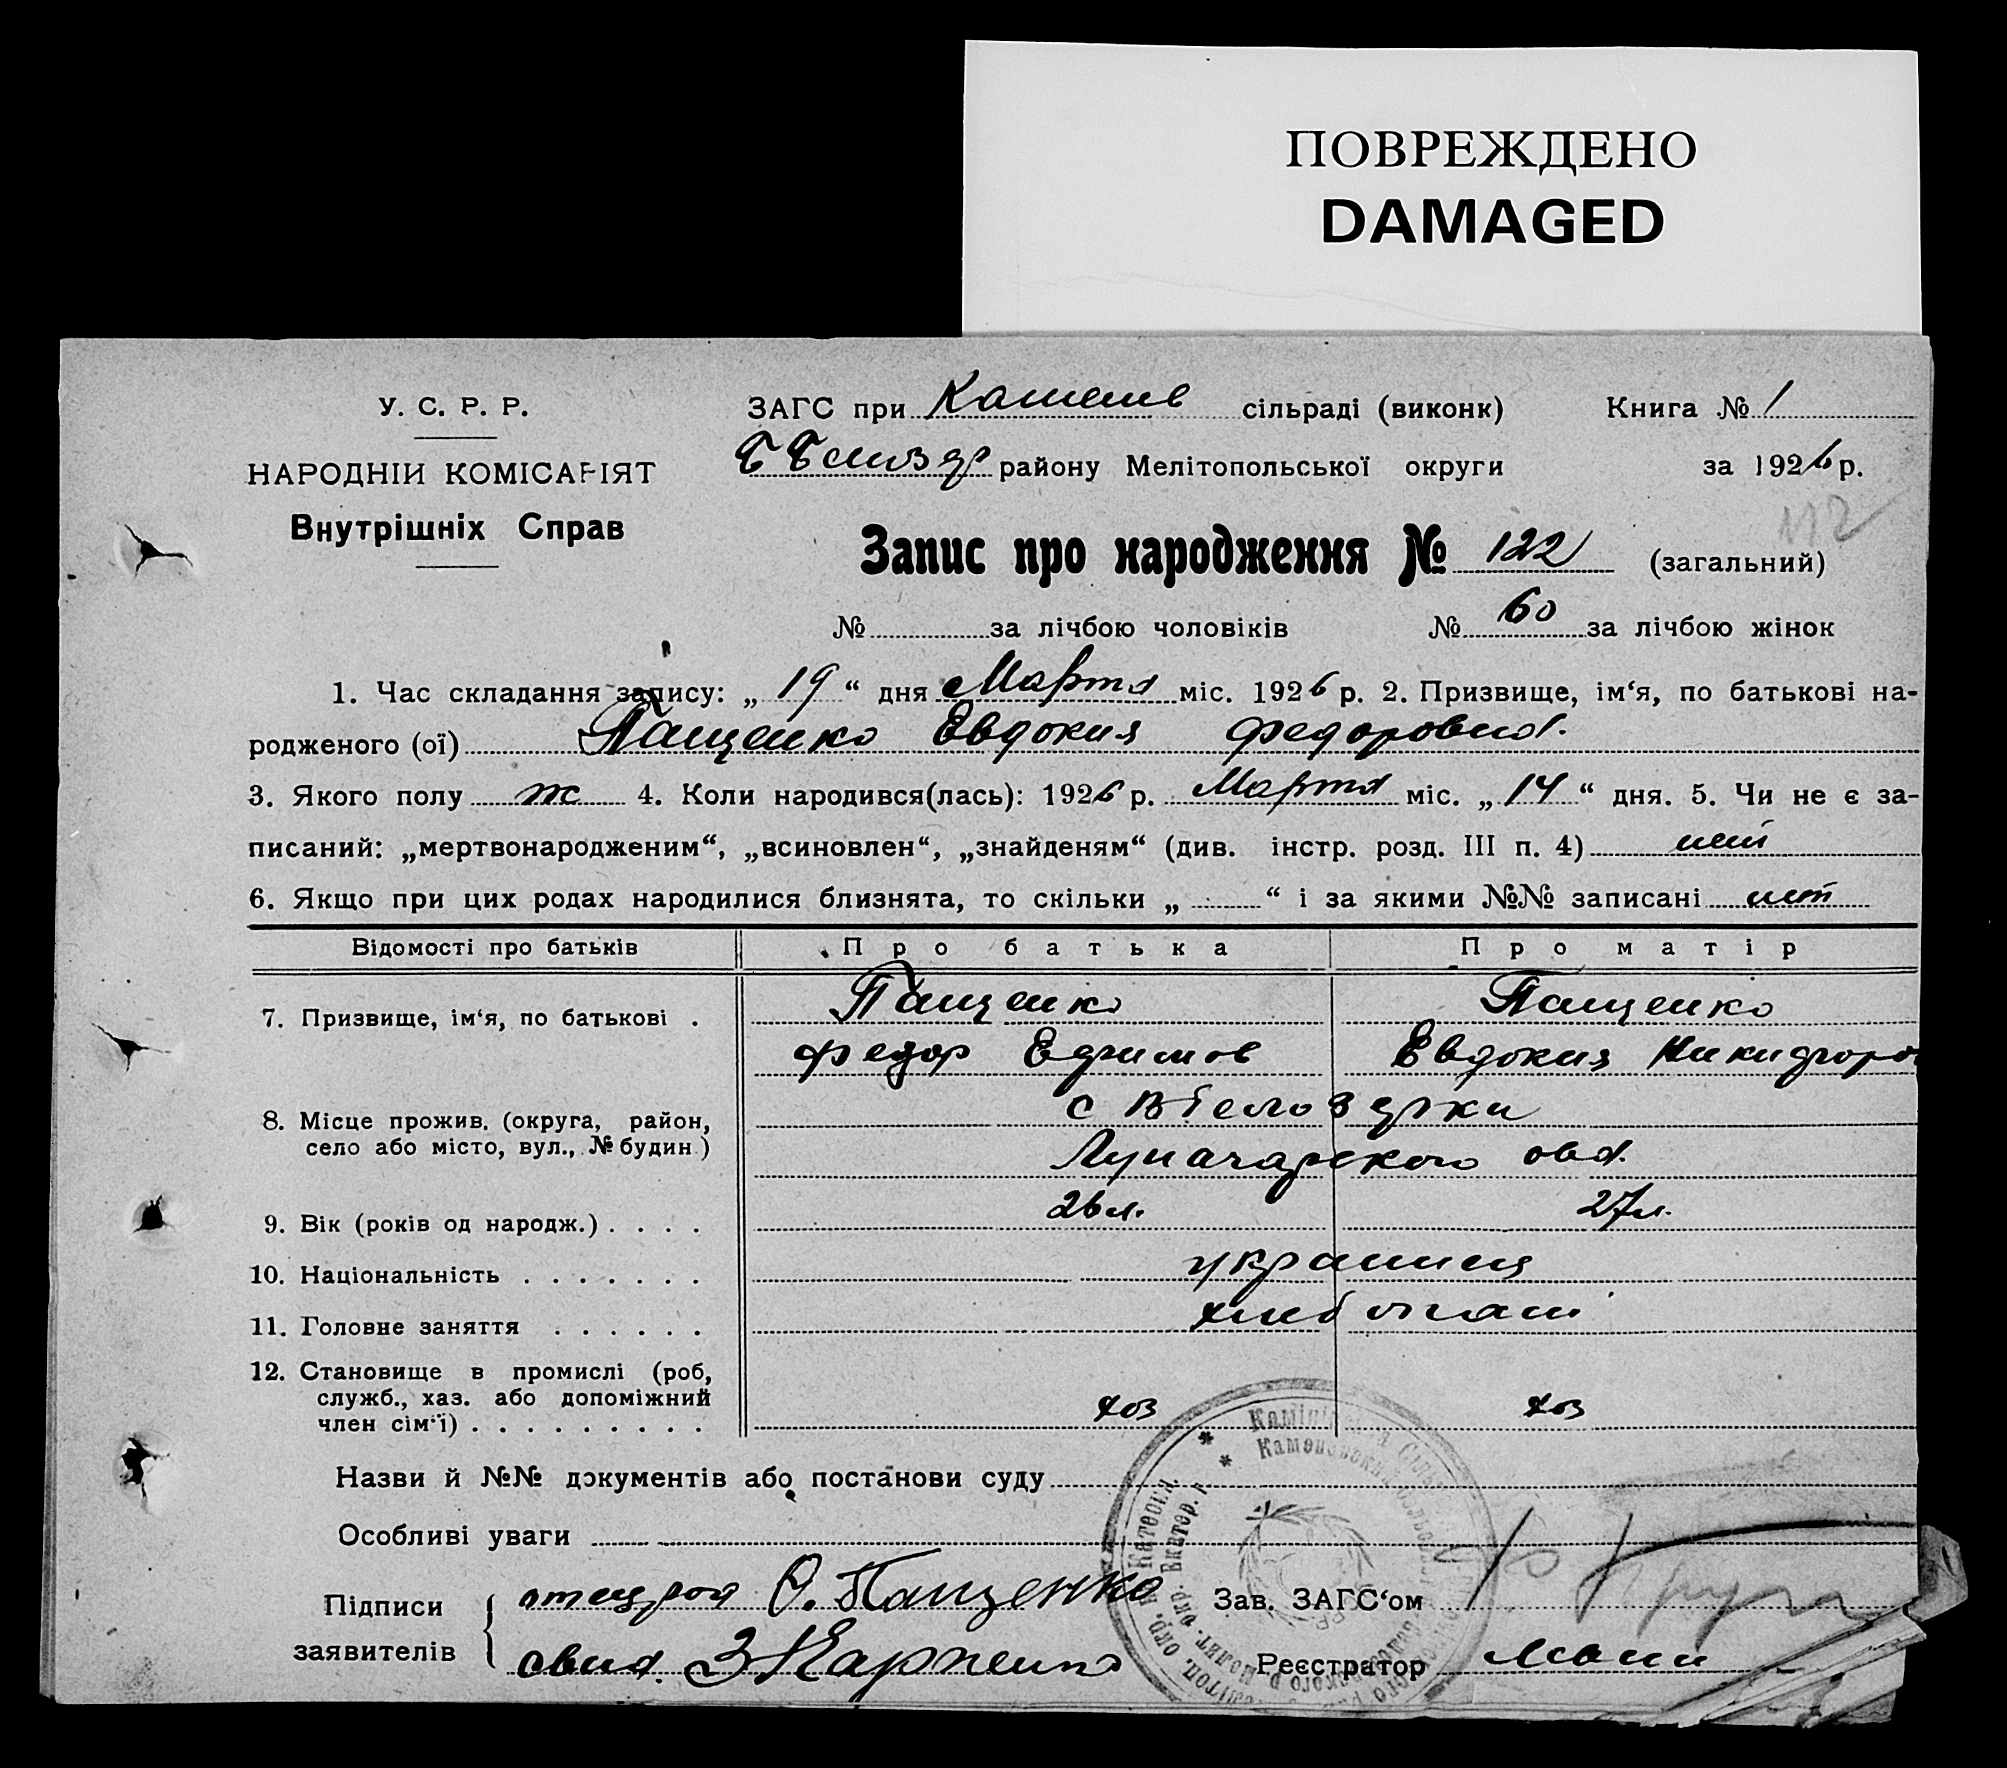 ПОВРЕЖДЕНО
DAMAGED
У. С. Р. Р.
НАРОДНІЙ КОМІСАРІЯТ
Внутрішніх Справ
ЗАГС при Камене сільраді (виконк) Книга № 1
району Мелітопольської округи за 1926 р.
112
Запис про народження № 122 (загальний)
№ за лічбою чоловіків № 60 за лічбою жінок
1. Час складання запису: „ 19 “ дня Марта міс. 1926 р. 2. Призвище, ім‘я, по батькові на-
родженого (ої) Пащенко Евдокия Федоровна.
3. Якого полу ж 4. Коли народився(лась): 1926 р. Марта міс. „ 14 “ дня. 5. Чи не є за-
писаний: „мертвонародженим“, „всиновлен“, „знайденям“ (див. інстр. розд. III п. 4) нет
6. Якщо при цих родах народилися близнята, то скільки „ “ і за якими №№ записані нет
Відомості про батьків Про батька Про матір
7. Призвище, ім‘я, по батькові . Пащенко Пащенко
Федор Ефимов Евдокия Никифоро
8. Місце прожив. (округа, район, село або місто, вул., № будин.) с В Белозерки
Луначарского
9. Вік (років од народж.) . . . . 26 л. 27 л.
10. Національність . . . . . . . украинец
11. Головне заняття . . . . . . хлебопаш
12. Становище в промислі (роб, служб., хаз. або допоміжний член сім‘ї) . . . . . . . . . хоз хоз
Назви й №№ документів або постанови суду
Особливі уваги
Підписи заявителів
отец О. Пащенко Зав. ЗАГС‘ом
З Карпенко Реєстратор